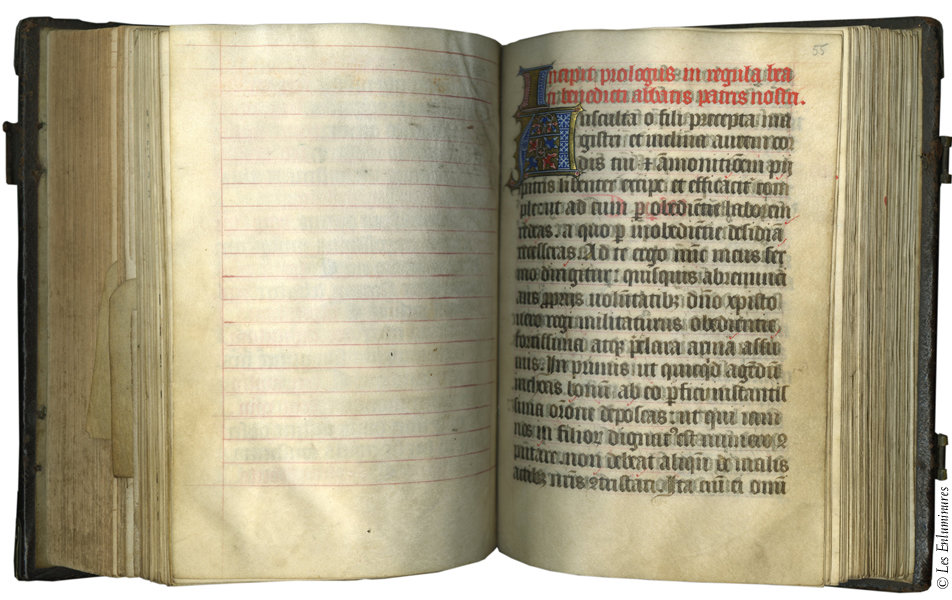 55
Incipit prologus in regula bea
ti benedicti abbatis patris nostri.
Ausculta o fili precepta ma
gistri et inclina aurem cor
dis tui ⁊ amonitionem pij
patris libenter excipe et efficacit com
ple: ut ad eum p obediencie laborem
redeas: a quo p inobediencie desidiā
recesseras. Ad te ergo nūc meus ser
mo dirigitur: quisquis abrenūcī
ans ppriis volūtatibꝫ dn̄o xpisto
vero regi militaturus obediencie
fortissima atqꝫ pclara arma assū
mis. In primis ut quicq͛d agēdū
inchoas bonū ab eo pfici instantis
sima or̄one deposcas: ut qui iam
nos in filioꝝ dignat͛ est numero 2
putare: non debeat aliqn̄ de malis
actibꝫ nr̄is 2tristari. Ita eūi ei om̄i
© Les Enluminures